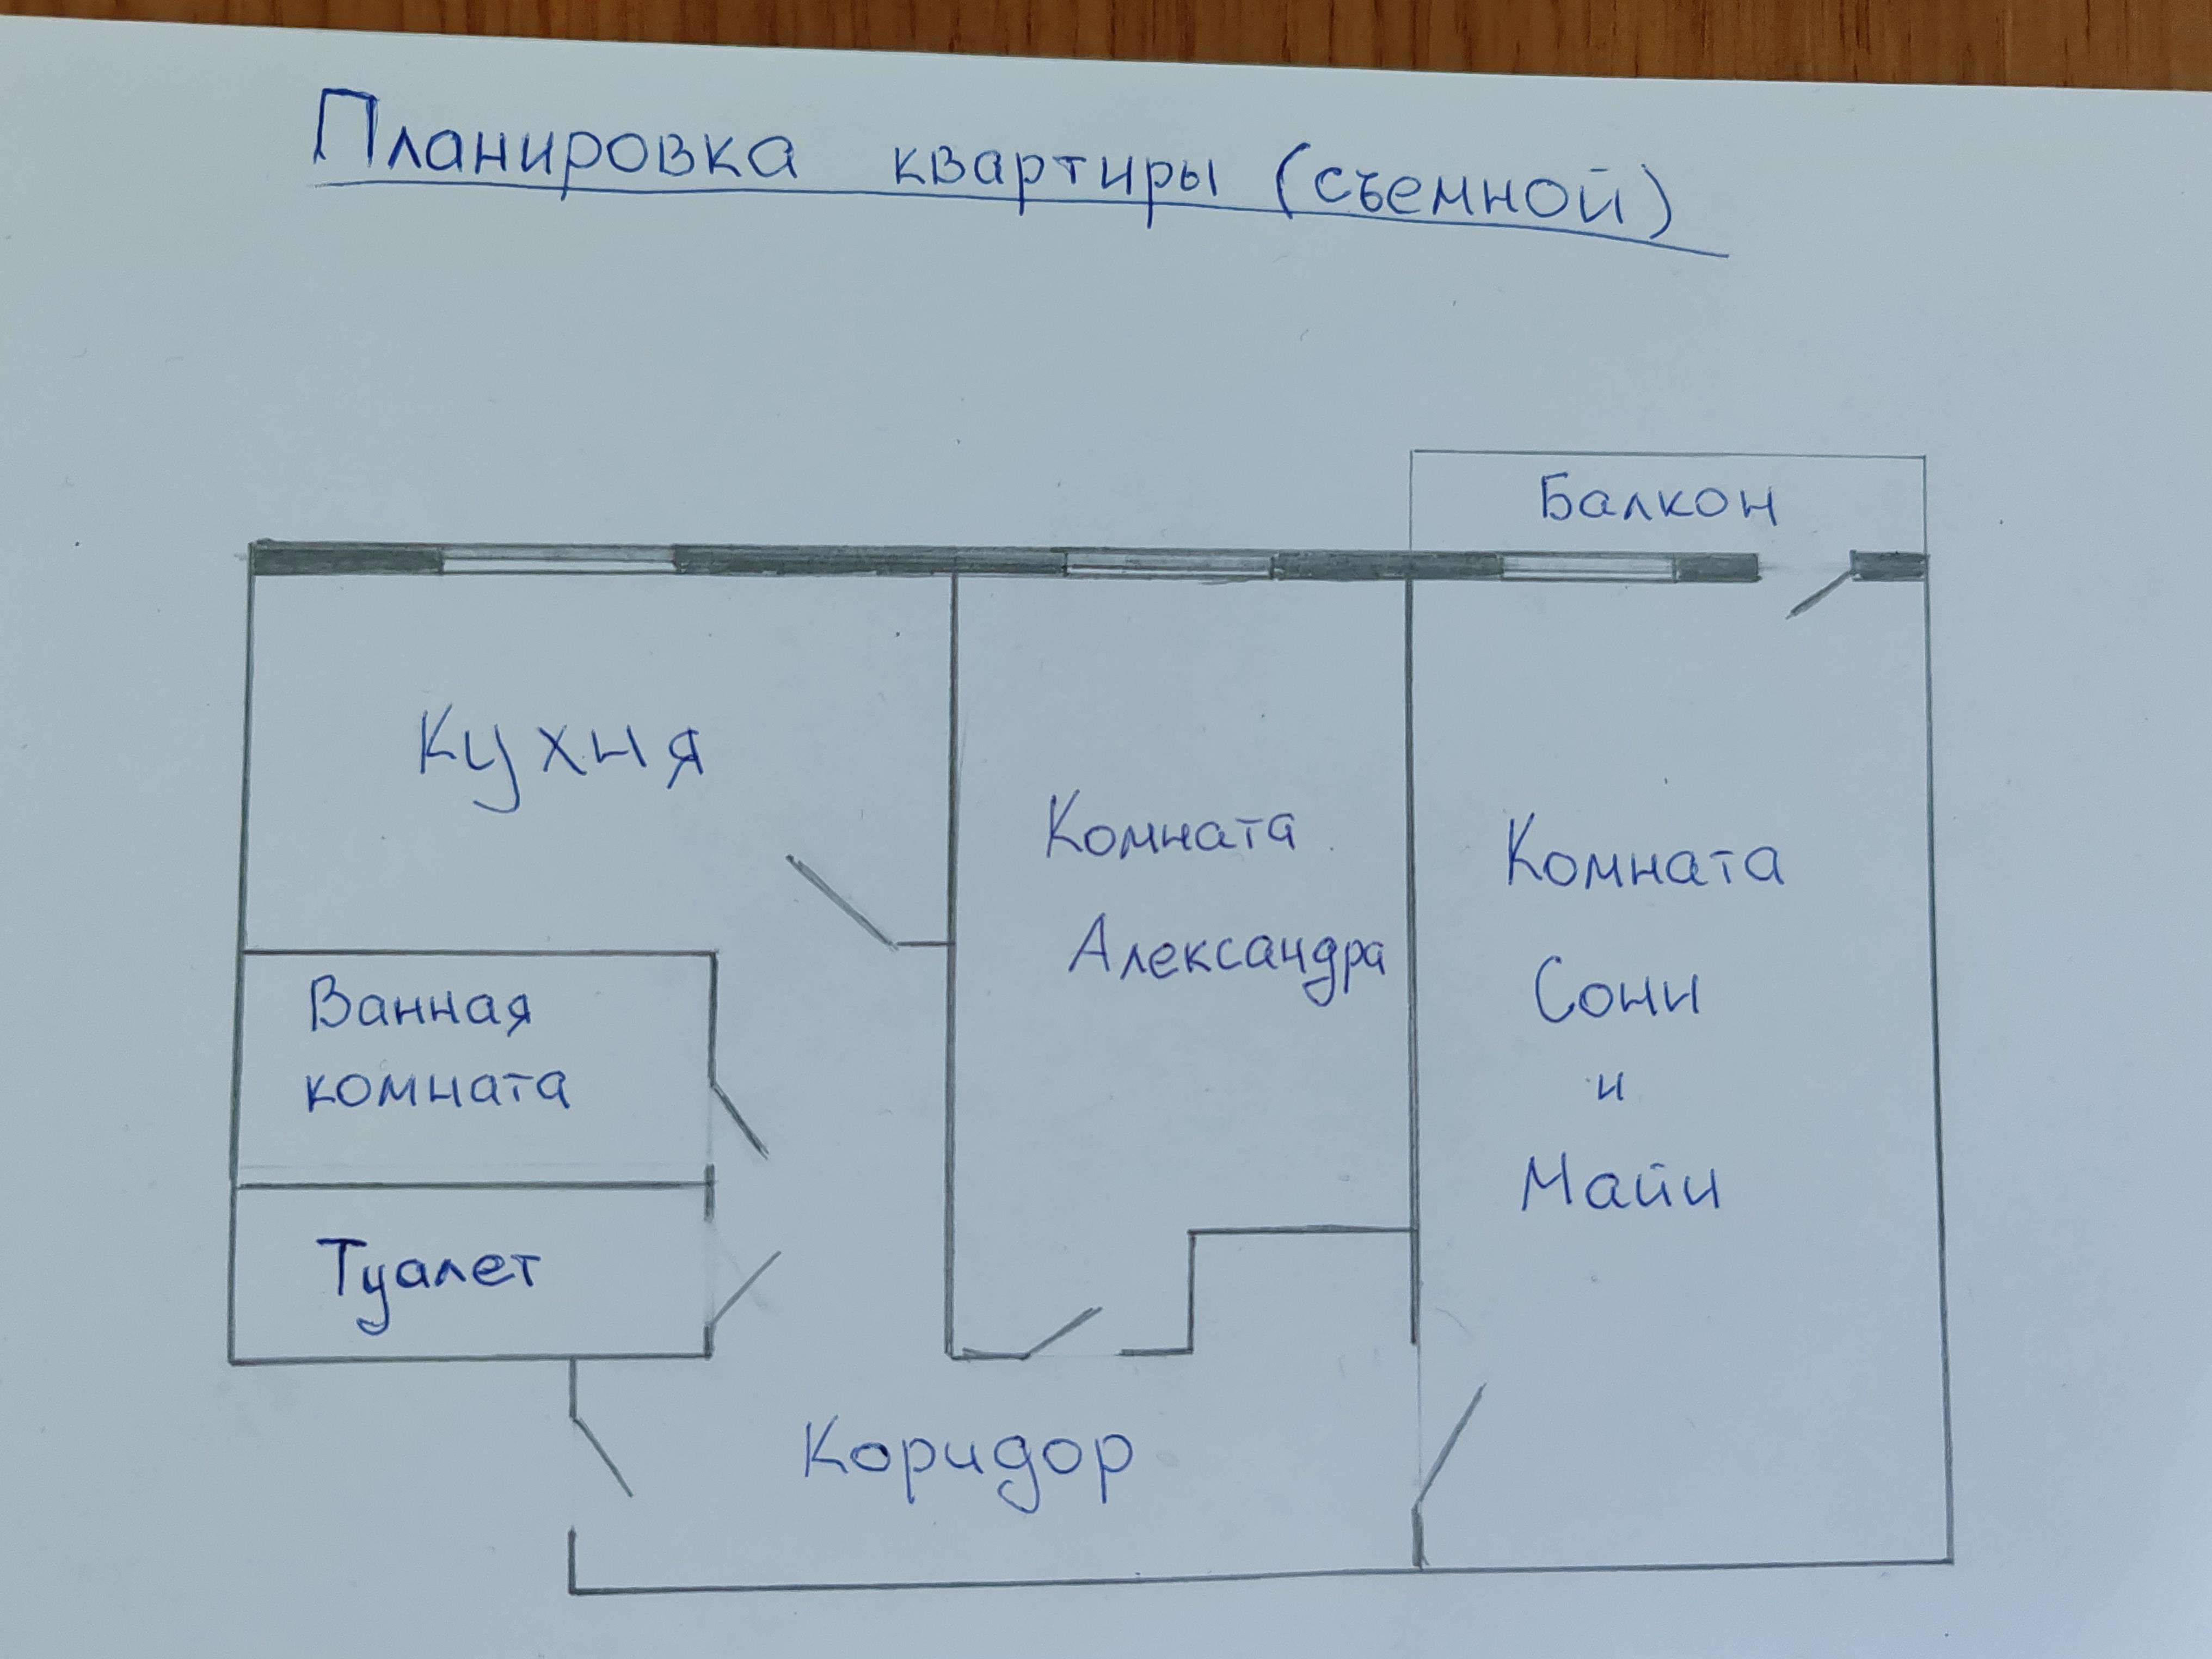 Планировка квартиры (съемной)
Балкон
Кухня
Комната
Александра
Комната
Сони
и
Майи
Ванная
комната
Туалет
Коридор